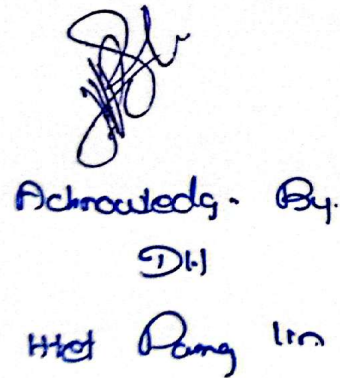 Acknowledg. By.
DH
Htet Paing lin